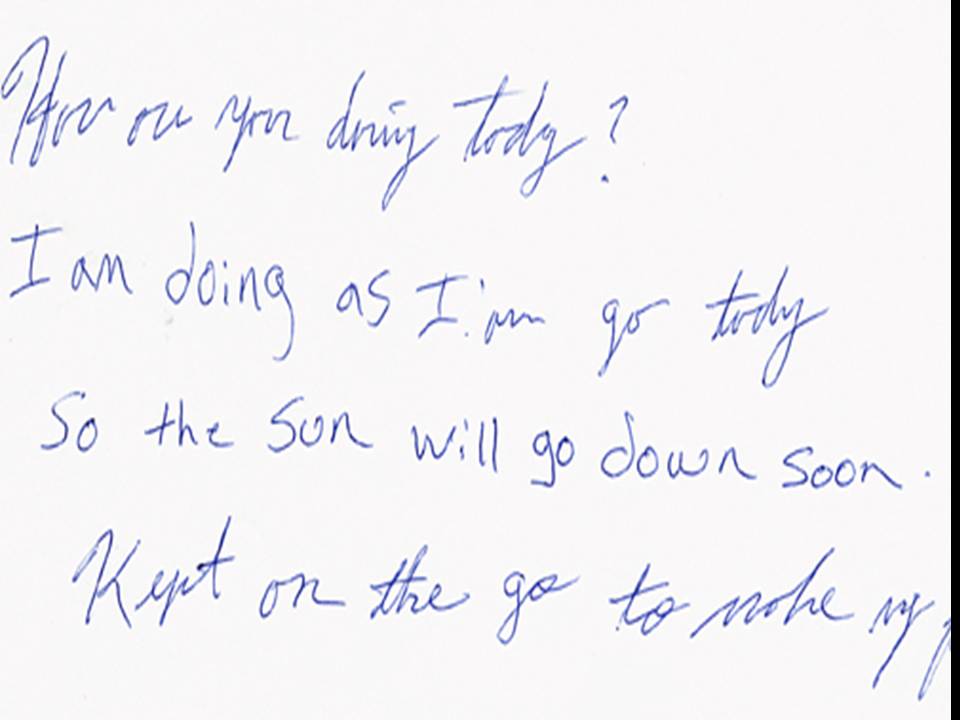 How are you doing today?
I am doing as I'm go today
So the sun will go down soon.
Kept on the go to make my